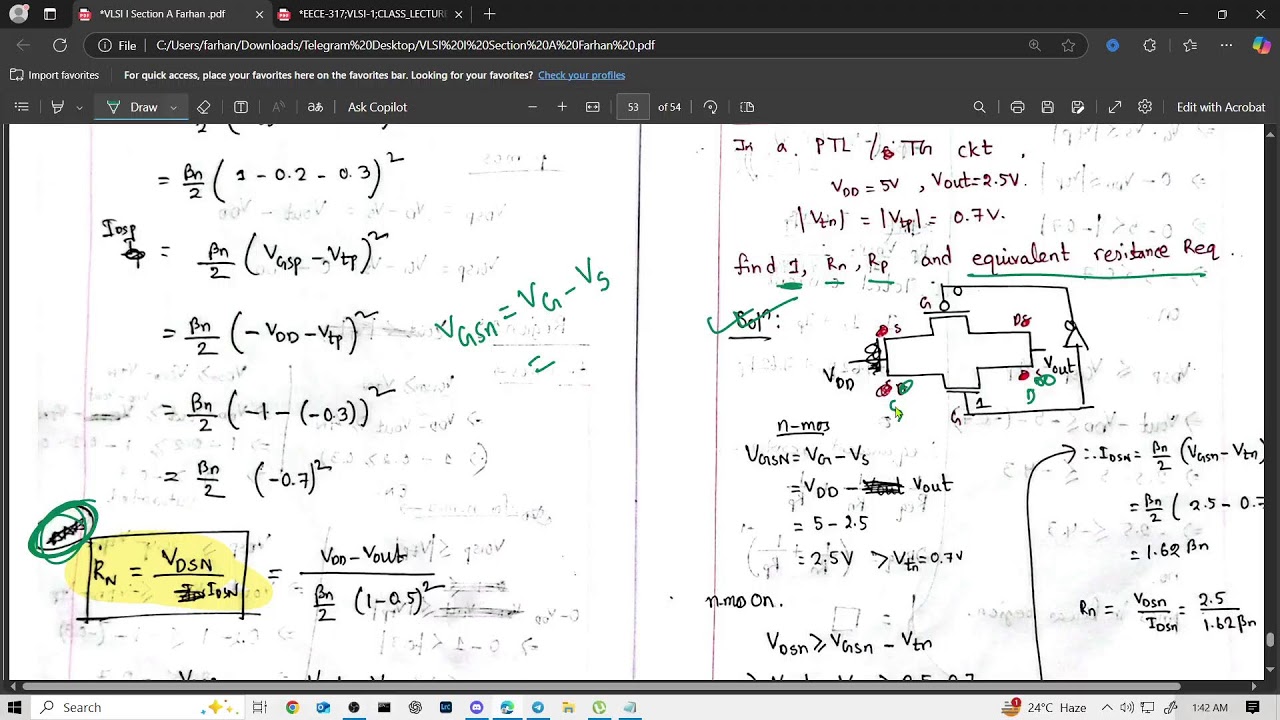 *VLSI I Section A Farhan .pdf
*EECE-317;VLSI-1;CLASS_LECTURE
File
C:/Users/farhan/Downloads/Telegram%20Desktop/VLSI%20I%20Section%20A%20Farhan%20.pdf
Import favorites
For quick access, place your favorites here on the favorites bar. Looking for your favorites? Check your profiles
Draw
Ask Copilot
53 of 54
Edit with Acrobat
= βn/2 (1 - 0.2 - 0.3)^2
IDSp = βn/2 (VGSp - Vtp)^2
= βn/2 (-VDD - Vtp)^2
= βn/2 (-1 - (-0.3))^2
= βn/2 (-0.7)^2
RN = VDSN / IDSN = VDD - Vout / βn/2 (1 - 0.5)^2
VGSn = VG - VS
=
In a PTL / TG ckt,
VDD = 5V, Vout = 2.5V.
|Vtn| = |Vtp| = 0.7V.
find 1, Rn, Rp and equivalent resistance Req.
Solⁿ:
G
0
S
DS
VDD
Vout
S
D
G
1
n-mos
VGSN = VG - VS
= VDD - Vout
= 5 - 2.5
= 2.5V > Vtn = 0.7V
n-mos On.
VDSn ≥ VGSn - Vtn
∴ IDSN = βn/2 (VGSn - Vtn)
= βn/2 (2.5 - 0.7
= 1.62 βn
Rn = VDSn / IDSn = 2.5 / 1.62βn
Search
24°C Haze
1:42 AM